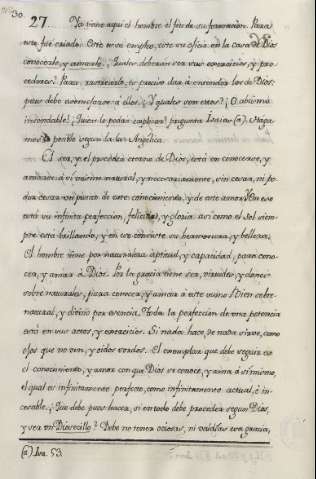 30.
27. Ya tiene aqui el hombre el fin de su formacion. Para
esto fué criado. Este es su empleo, este su oficio en la Casa de Dios
conocerle, y amarle. ¿Quales deberán ser sus exercicios, y pro-
cederes? Para saberlo, es preciso dar à entender los de Dios;
pues debe conformarse à ellos. ¿Y quales son estos? ¡O abismo
insondable! ¿Quien lo podrá explicar? pregunta Isaias (a). Haga-
mos lo posible segun la luz Angelica.
El ser, y el proceder eterno de Dios, está en conocerse, y
amarse à sí mismo natural, y necesariamente, sin cesar, ni po-
der cesar un punto de este conocimiento, y de este amar. En ese
está su infinita perfeccion, felicidad, y gloria: asi como el Sol siem-
pre está brillando, y en ese consiste su hermosura, y belleza.
El hombre tiene por naturaleza aptitud, y capacidad, para cono-
cer, y amar à Dios. Por la gracia tiene ser, virtudes, y dones
sobre naturales, para conocer, y amar à este sumo Bien sobre
natural, y divino por esencia. Toda la perfeccion de una potencia
está en sus actos, y exercicios. Si nada hace, de nada sirve, como
ojos que no ven, y oidos sordos. El exemplar que debe seguir es
el conocimiento, y amor con que Dios se conoce, y ama à si mismo,
el qual es infinitamente perfecto, como infinitamente actual, è in-
cesable. ¿Que debe pues hacer, si en todo debe proceder segun Dios,
y ser un Diosecillo? Debe no tener ociosas, ni valdías esa gracia,
(a) Isa. 53.